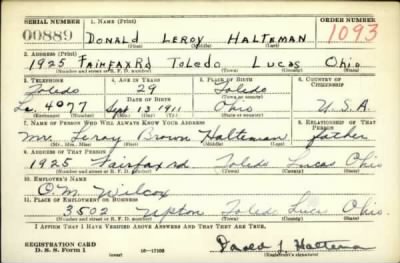 SERIAL NUMBER 1. NAME (Print) ORDER NUMBER
00889 DONALD LEROY HALTEMAN 1093
(First) (Middle) (Last)
2. ADDRESS (Print)
1925 FAIRFAX Rd TOLEDO LUCAS OHIO
(Number and street or R. F. D. number) (Town) (County) (State)
3. TELEPHONE 4. AGE IN YEARS 5. PLACE OF BIRTH 6. COUNTRY OF CITIZENSHIP
Toledo 29 Toledo
DATE OF BIRTH (Town or county)
La. 4077 Sept 13 1911 Ohio U.S.A.
(Mo.) (Day) (Yr.) (State or country)
7. NAME OF PERSON WHO WILL ALWAYS KNOW YOUR ADDRESS 8. RELATIONSHIP OF THAT PERSON
Mr. Leroy Brown Halteman father
(Mr., Mrs., Miss) (First) (Middle) (Last)
9. ADDRESS OF THAT PERSON
1925 Fairfax rd Toledo Lucas Ohio
(Number and street or R. F. D. number) (Town) (County) (State)
10. EMPLOYER'S NAME
O.M. Wilcox
11. PLACE OF EMPLOYMENT OR BUSINESS
3502 Upton Toledo Lucas Ohio.
(Number and street or R. F. D. number) (Town) (County) (State)
I AFFIRM THAT I HAVE VERIFIED ABOVE ANSWERS AND THAT THEY ARE TRUE.
REGISTRATION CARD
D. S. S. Form 1 16—17105 Donald L Halteman
(over) (Registrant's signature)